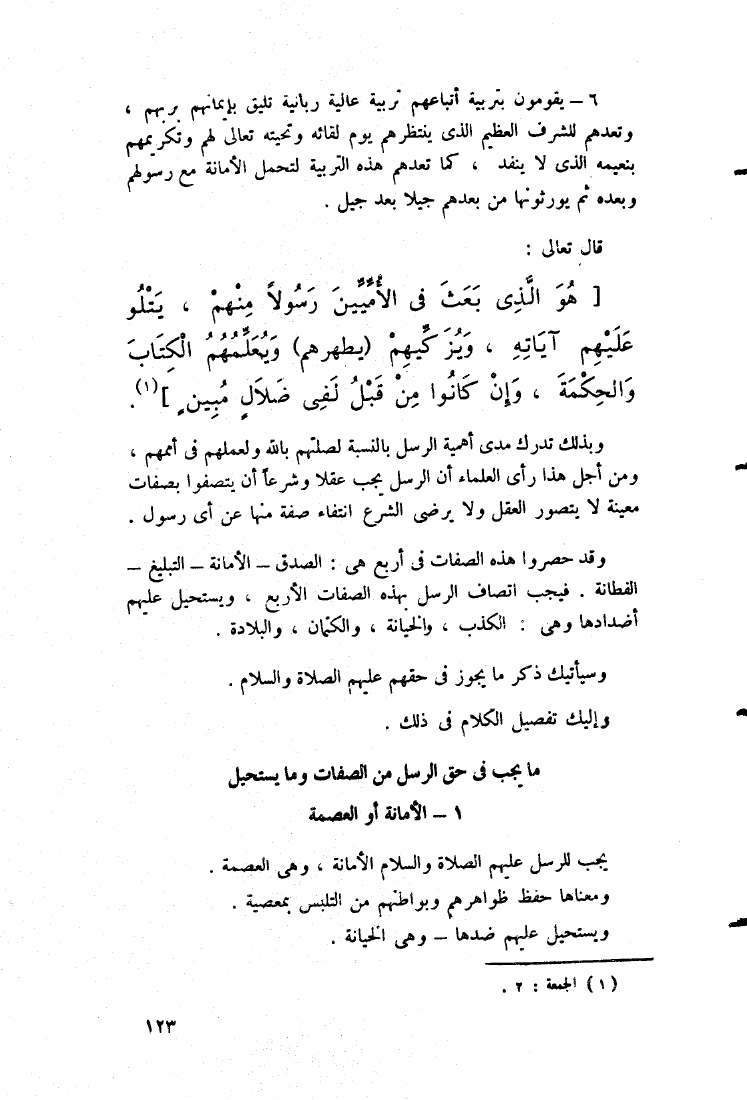 ٦ – يقومون بتربية أتباعهم تربية عالية ربانية تليق بإيمانهم بربهم ،
وتعدهم للشرف العظيم الذى ينتظرهم يوم لقائه وتحيته تعالى لهم وتكريمهم
بنعيمه الذى لا ينفد ، كما تعدهم هذه التربية لتحمل الأمانة مع رسولهم
وبعده ثم يورثونها من بعدهم جيلا بعد جيل .
قال تعالى :
[ هُوَ الَّذِى بَعَثَ فى الأُمِّيِّينَ رَسُولاً مِنْهمْ ، يَتْلُو
عَلَيْهِم آيَاتِهِ ، وَيُزَكِّيهِمْ (يطهرهم) وَيُعَلِّمُهُمُ الْكِتَابَ
وَالحِكْمَةَ ، وَإِنْ كَانُوا مِنْ قَبْلُ لَفِى ضَلاَلٍ مُبِينٍ ](١).
وبذلك تدرك مدى أهمية الرسل بالنسبة لصلتهم بالله ولعملهم فى أممهم ،
ومن أجل هذا رأى العلماء أن الرسل يجب عقلا وشرعاً أن يتصفوا بصفات
معينة لا يتصور العقل ولا يرضى الشرع انتفاء صفة منها عن أى رسول .
وقد حصروا هذه الصفات فى أربع هى : الصدق – الأمانة – التبليغ –
الفطانة . فيجب اتصاف الرسل بهذه الصفات الأربع ، ويستحيل عليهم
أضدادها وهى : الكذب ، والخيانة ، والكتمان ، والبلادة .
وسيأتيك ذكر ما يجوز فى حقهم عليهم الصلاة والسلام .
وإليك تفصيل الكلام فى ذلك .
ما يجب فى حق الرسل من الصفات وما يستحيل
١ – الأمانة أو العصمة
يجب للرسل عليهم الصلاة والسلام الأمانة ، وهى العصمة .
ومعناها حفظ ظواهرهم وبواطنهم من التلبس بمعصية .
ويستحيل عليهم ضدها – وهى الخيانة .
(١) الجمعة : ٢ .
١٢٣